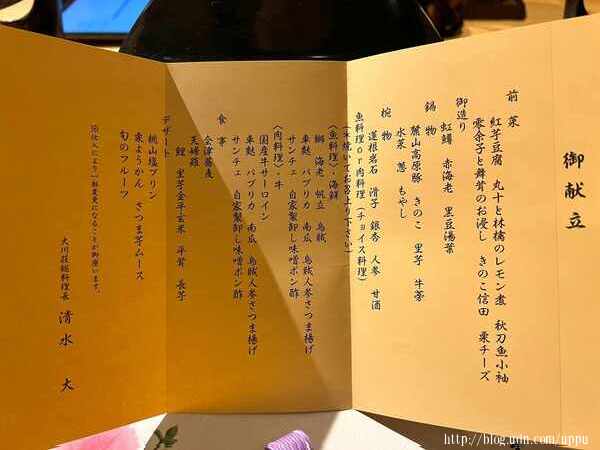 御献立
前菜
紅芋豆腐 丸十と林檎のレモン煮 秋刀魚小袖
零余子と舞茸のお浸し きのこ信田 栗チーズ
御造り
虹鱒 赤海老 黒豆湯葉
鍋物
麓山高原豚 きのこ 里芋 牛蒡
水菜 葱 もやし
椀物
蓮根岩石 滑子 銀杏 人参 甘酒
魚料理or肉料理(チョイス料理)
(※焼いてお召上り下さい)
〈魚料理〉・海鮮
鰤 海老 帆立 烏賊
車麩 パプリカ 南瓜 烏賊人参さつま揚げ
サンチェ 自家製卸し味噌ポン酢
〈肉料理〉・牛
国産牛サーロイン
車麩 パプリカ 南瓜 烏賊人参さつま揚げ
サンチェ 自家製卸し味噌ポン酢
食事
会津蕎麦
天婦羅
鯉 里芋金平玄米 平茸 長芋
デザート
桃山塩プリン
栗ようかん さつま芋ムース
旬のフルーツ
※仕入により一部変更になることが御座います。
大川荘総料理長 清水 大
http://blog.udn.com/uppu